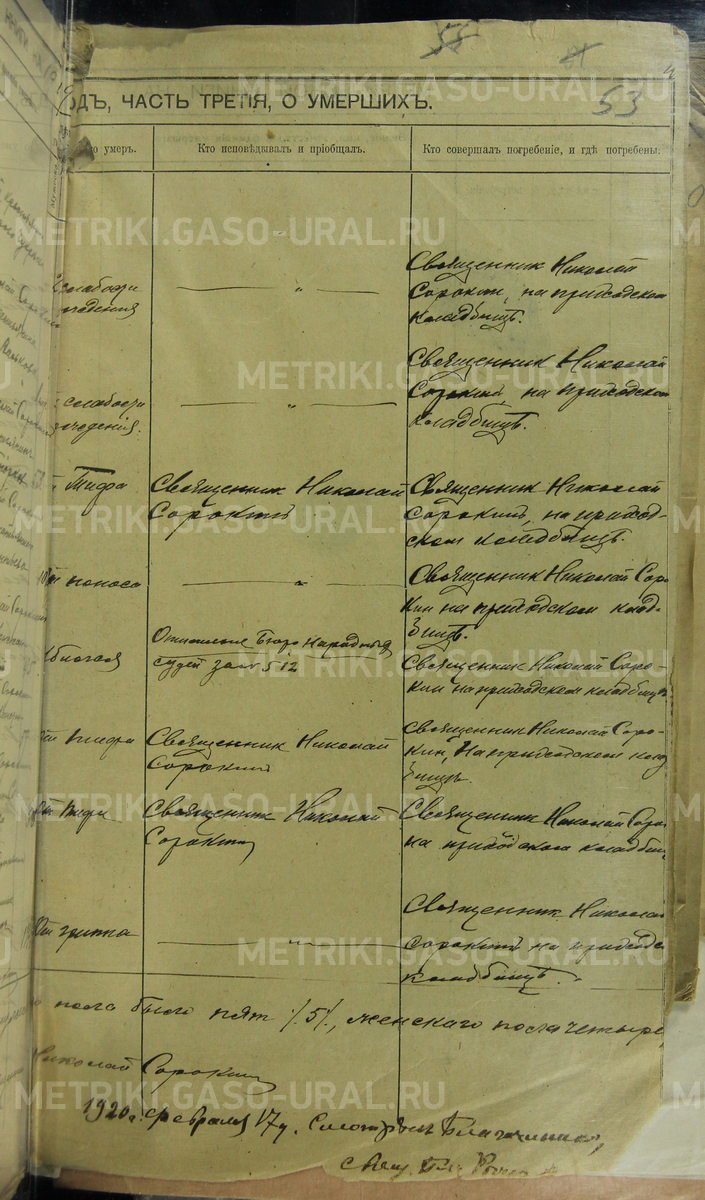 53
ОДЪ, ЧАСТЬ ТРЕТІЯ, О УМЕРШИХЪ.
умеръ.
Кто исповѣдывалъ и пріобщалъ.
Кто совершалъ погребеніе, и гдѣ погребены.
слабости
рождения
Священник Николай
Сорокин, на приходском
кладбищѣ.
слабости
рождения
Священник Николай
Сорокин, на приходском
кладбищѣ.
Тифа
Священник Николай
Сорокинъ
Священник Николай
Сорокинъ, на приход-
ском кладбищѣ.
От поноса
Священник Николай Соро
кин на приходском клад-
бищѣ.
Отношение Бюро народных
судей за № 512
Священник Николай Соро-
кин на приходском кладбищѣ
От тифа
Священник Николай
Сорокин
Священник Николай Соро-
кин, на приходском клад
бищѣ.
От тифа
Священник Николай
Сорокин
Священник Николай Соро
на приходском кладбищ
От гриппа
Священник Николай
Сорокинъ на приходс
кладбищѣ.
пола было пят /5/, женскаго пола четыре
Николай Сорокин
1920 г. февраля 17 д. Смотрѣлъ Благочинный,
свящ.
METRIKI.GASO-URAL.RU